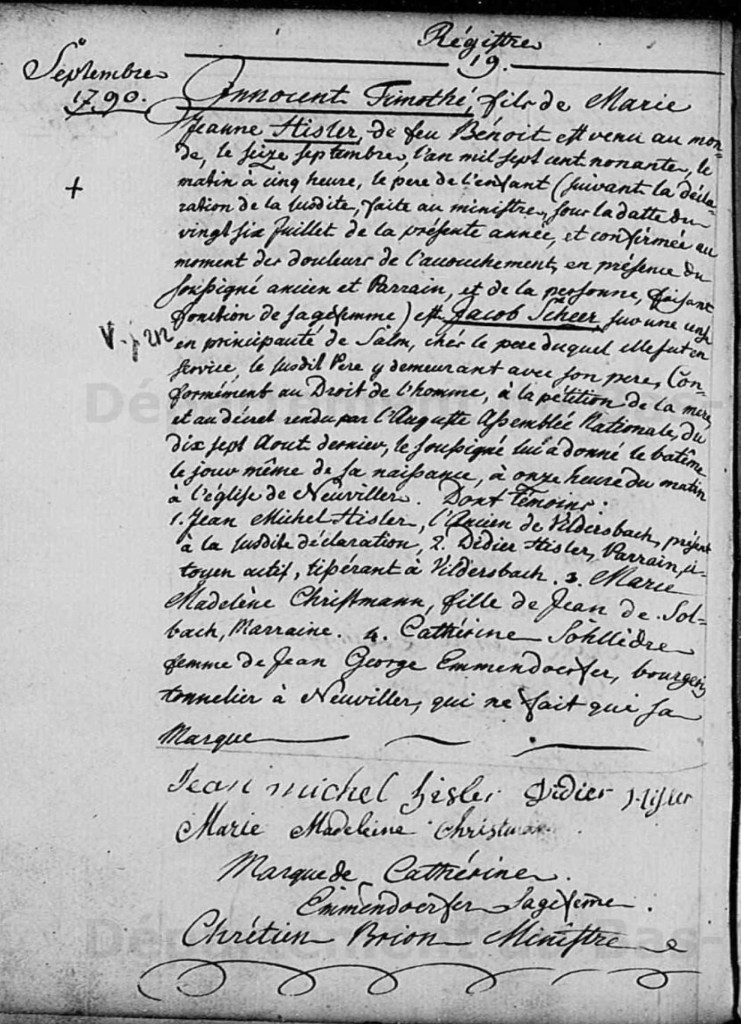 Régistre
19.
Septembre
1790.
Innocent Timothé, fils de Marie
Jeanne Hisler, de feu Bénoit est venu au mon-
de, le seize septembre, l'an mil sept cent nonante, le
matin à cinq heure, le pere de l'enfant (suivant la décla-
ration de la susdite, faite au ministre, sous la datte du
vingt six Juillet de la présente année, et confirmée au
moment des douleurs de l'accouchement, en présence du
soussigné ancien et Parrain, et de la personne, faisant
fonction de sagefemme) est Jacob Scheer, sur une
en principauté de Salm, chés le pere duquel elle fut en
service, le susdit Pere y demeurant avec son pere, Con-
formément au Droit de l'homme, à la pétition de la mere,
et au décret rendu par l'Auguste Assemblée Nationale, du
dix sept Aout dernier, le soussigné lui a donné le batême
le jour même de sa naissance, à onze heure du matin
à l'église de Neuviller. Dont Témoins:
1. Jean Michel Hisler, l'Ancien de Vildersbach, présent
à la susdite déclaration, 2. Didier Hisler, Parrain, ci-
toyen actif, tissérant à Vildersbach. 3. Marie
Madelène Christmann, fille de Jean de Sol-
bach, Marraine. 4. Cathérine
femme de Jean George Emmendoerfer, bourgeois
tonnelier à Neuviller, qui ne fait que sa
Marque
+
Jean michel hisler Didier Hisler
Marie Madeleine Christmann
Marque de Cathérine
Emmendoerfer Sagefemme.
Chrétien Brion Ministre